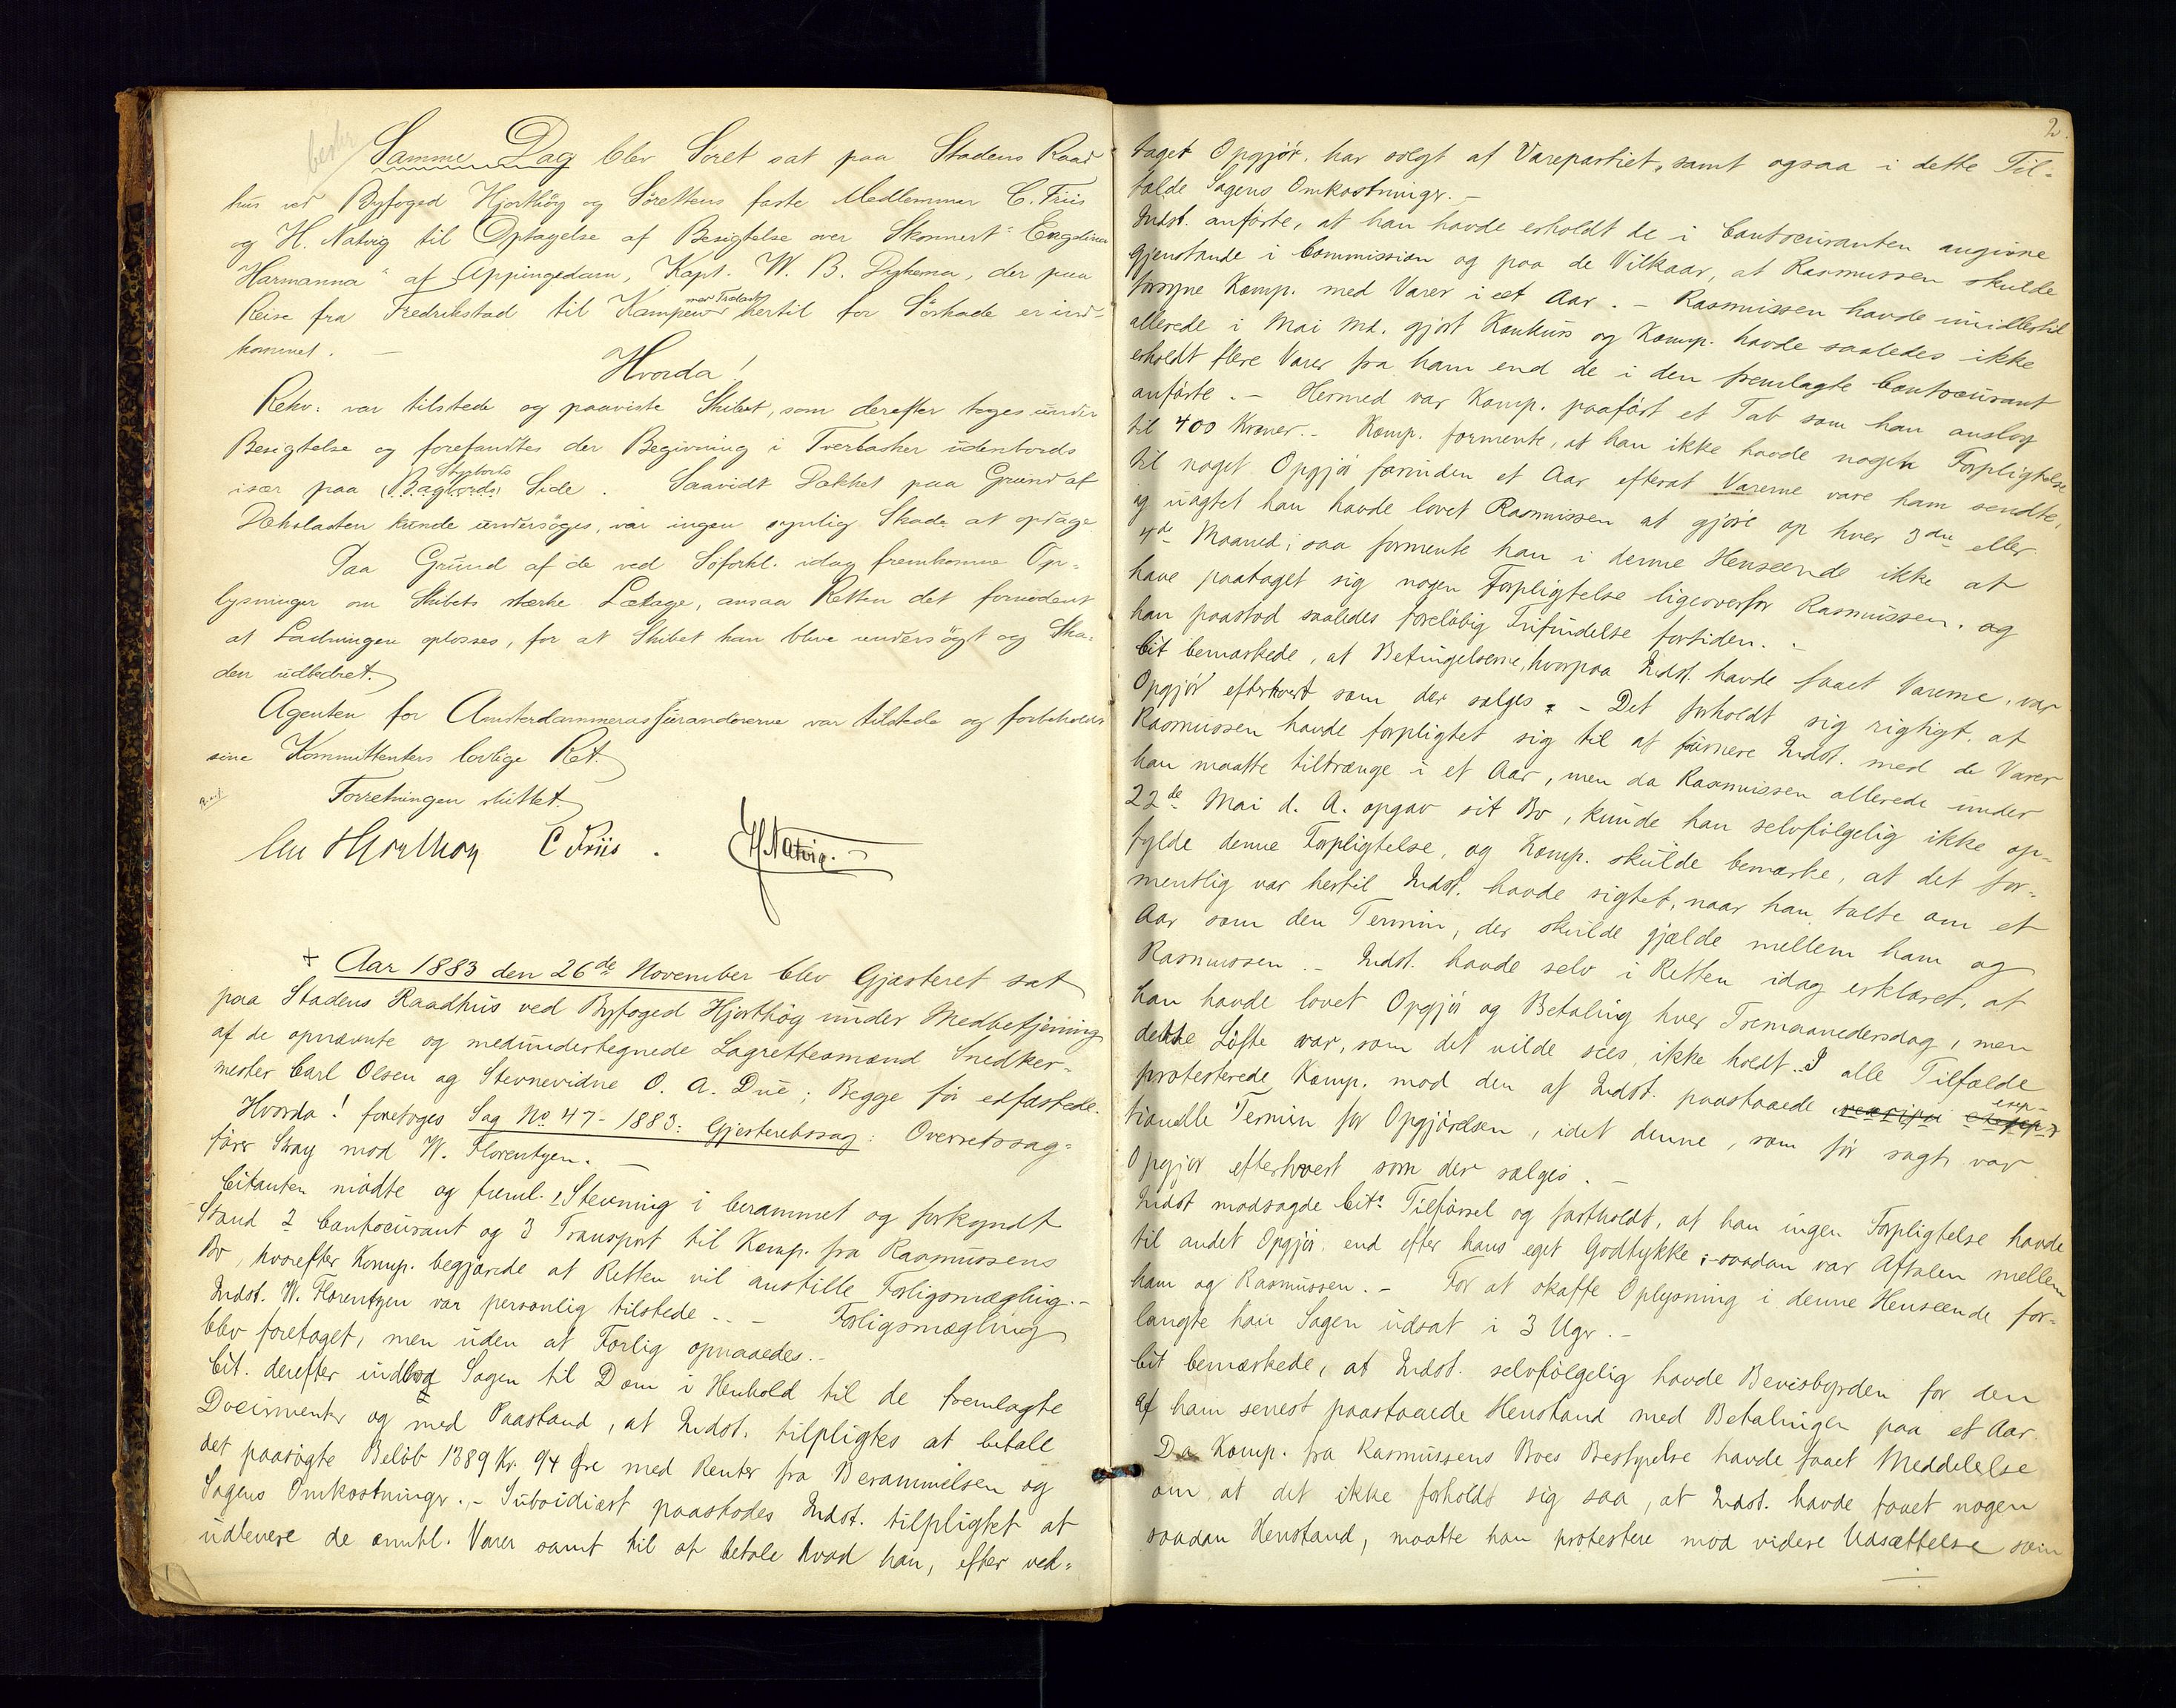 Samme Dag blev Söret sat paa Stadens Raad
hus ved Byfoged Hjorthöy og Sörettens faste Medlemmer C. Friis
og H. Natvig til Optagelse af Besigtelse over Skonnert "Engelina
Harmanna" af Appingedam, Kapt. W. B. Dykema, der paa
Reise fra Fredrikstad til Kampen med Trælast hertil for Söskade er ind-
kommet. —
Hvorda!
Rekv. var tilstede og paaviste Skibet, som derefter toges under
Besigtelse og forefandtes der Begivning i Tverbasker udenbords
især paa (Bagbords) Styrbords Side. Saavidt Dækket paa Grund af
Dækslasten kunde undersöges, var ingen synlig Skade at opdage
Paa Grund af de ved Söforkl. idag fremkomne Op-
lysninger om Skibets stærke Lækage, ansaa Retten det fornödent
at Ladningen oplosses, for at Skibet kan blive undersögt og Ska-
den udbedret.
Agenten for Amsterdammerassürandörerne var tilstede og forbeholdt
sine Kommittenters lovlige Ret.
Forretningen sluttet.
Hjorthøy C Friis. H. Natvig.
+ Aar 1883 den 26de November blev Gjæsteret sat
paa Stadens Raadhus ved Byfoged Hjorthöy under Medbetjening
af de opnævnte og medundertegnede Lagrettesmænd Snedker-
mester Carl Olsen og Stevnevidne O. A. Due; Begge för edfæstede.
Hvorda! foretoges Sag No 47 - 1883: Gjesteretssag: Overretssag-
förer Stray mod W. Florentzen. —
Citanten mödte og freml. 1 Stevning i berammet og forkyndt
Stand 2 Contocurant og 3 Transport til Komp. fra Rasmussens
Bo, hvorefter Komp. begjærede at Retten vil anstille Forligsmægling. -
Indst. W. Florentzen var personlig tilstede. - - Forligsmægling
blev foretaget, men uden at Forlig opnaaedes. -
Cit. derefter indlod Sagen til Dom i Henhold til de fremlagte
Documenter og med Paastand, at Indst. tilpligtes at betale
det paasögte Belöb 1389 Kr. 94 Öre med Renter fra Berammelsen og
Sagens Omkostninger. - Subsidiært paastodes Indst. tilpligtet at
udlevere de omhl. Varer samt til at betale hvad han, efter ved-
2.
taget Opgjör, har solgt af Varepartiet, samt ogsaa i dette Til-
fælde Sagens Omkostninger. -
Indst. anförte, at han havde erholdt de i Contocuranten angivne
Gjenstande i Commission og paa de Vilkaar, at Rasmussen skulde
forsyne Komp. med Varer i eet Aar. - Rasmussen havde imidlertid
allerede i Mai Md. gjort Konkurs og Komp. havde saaledes ikke
erholdt flere Varer fra ham end de i den fremlagte Contocurant
anförte. - Hermed var Komp. paafört et Tab som han anslog
til 400 Kroner. - Komp. formente, at han ikke havde nogen Forpligtelse
til noget Opgjör forinden et Aar efterat Varerne vare ham sendte,
og uagtet han havde lovet Rasmussen at gjöre op hver 3die eller
4de Maaned, saa formente han i denne Henseende ikke at
have paataget sig nogen Forpligtelse ligeoverfor Rasmussen, og
han paastod saaledes foreløbig Frifindelse fortiden. -
Cit bemærkede, at Betingelserne, hvorpaa Indst. havde faaet Varerne, var
Opgjör efterhvert som der sælges. - Det forholdt sig rigtigt, at
Rasmussen havde forpligtet sig til at furnere Indst. med de Varer
han maatte tiltrænge i et Aar, men da Rasmussen allerede under
22de Mai d. A. opgav sit Bo, kunde han selvfölgelig ikke op-
fylde denne Forpligtelse, og Komp. skulde bemærke, at det for-
mentlig var hertil Indst. havde sigtet, naar han talte om et
Aar som den Termin, der skulde gjælde mellem ham og
Rasmussen. - Indst. havde selv i Retten idag erklæret, at
han havde lovet Opgjör og Betaling hver Tremaanedersdag, men
dette Löfte var, som det vilde sees, ikke holdt. I alle Tilfælde
protesterede Komp. mod den af Indst. paastaaede excep-
tionelle Termin for Opgjörelsen, idet denne, som för sagt, var
Opgjör efterhvert som der sælges. -
Indst modsagde Cits Tilförsel og fastholdt, at han ingen Forpligtelse havde
til andet Opgjör, end efter hans eget Godtykke; saadan var Aftalen mellem
ham og Rasmussen. - For at skaffe Oplysning i denne Henseende for-
langte han Sagen udsat i 3 Uger. -
Cit bemærkede, at Indst. selvfölgelig havde Bevisbyrden for den
af ham senest paastaaede Henstand med Betalingen paa et Aar.
Da Komp. fra Rasmussens Boes Bestyrelse havde faaet Meddelelse
om, at det ikke forholdt sig saa, at Indst. havde faaet nogen
saadan Henstand, maatte han protestere mod videre Udsættelse som